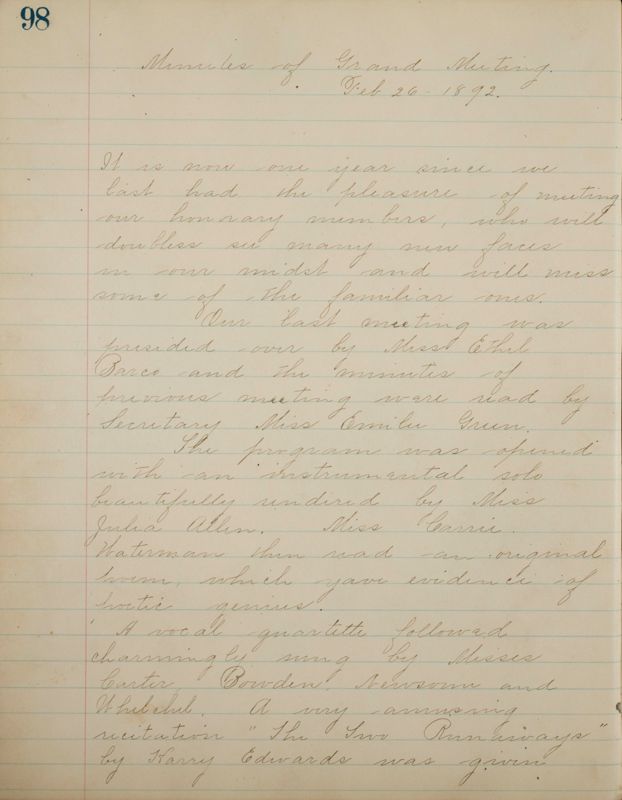 98
Minutes of Grand Meeting.
Feb 26 - 1892.
It is now one year since we
last had the pleasure of meeting
our honorary members, who will
doubless see many new faces
in our midst and will miss
some of the familiar ones.
Our last meeting was
presided over by Miss Ethel
Barco and the minutes of
previous meeting were read by
Secretary Miss Emilie Green.
The program was opened
with an instrumental solo
beautifully rendered by Miss
Julia Allen. Miss Carrie
Waterman then read an original
poem, which gave evidence of
poetic genius.
A vocal quartette followed
charmingly sung by Misses
Carter, Bowden, Newsom and
A very amusing
recitation "The Two Runaways"
by Harry Edwards was given